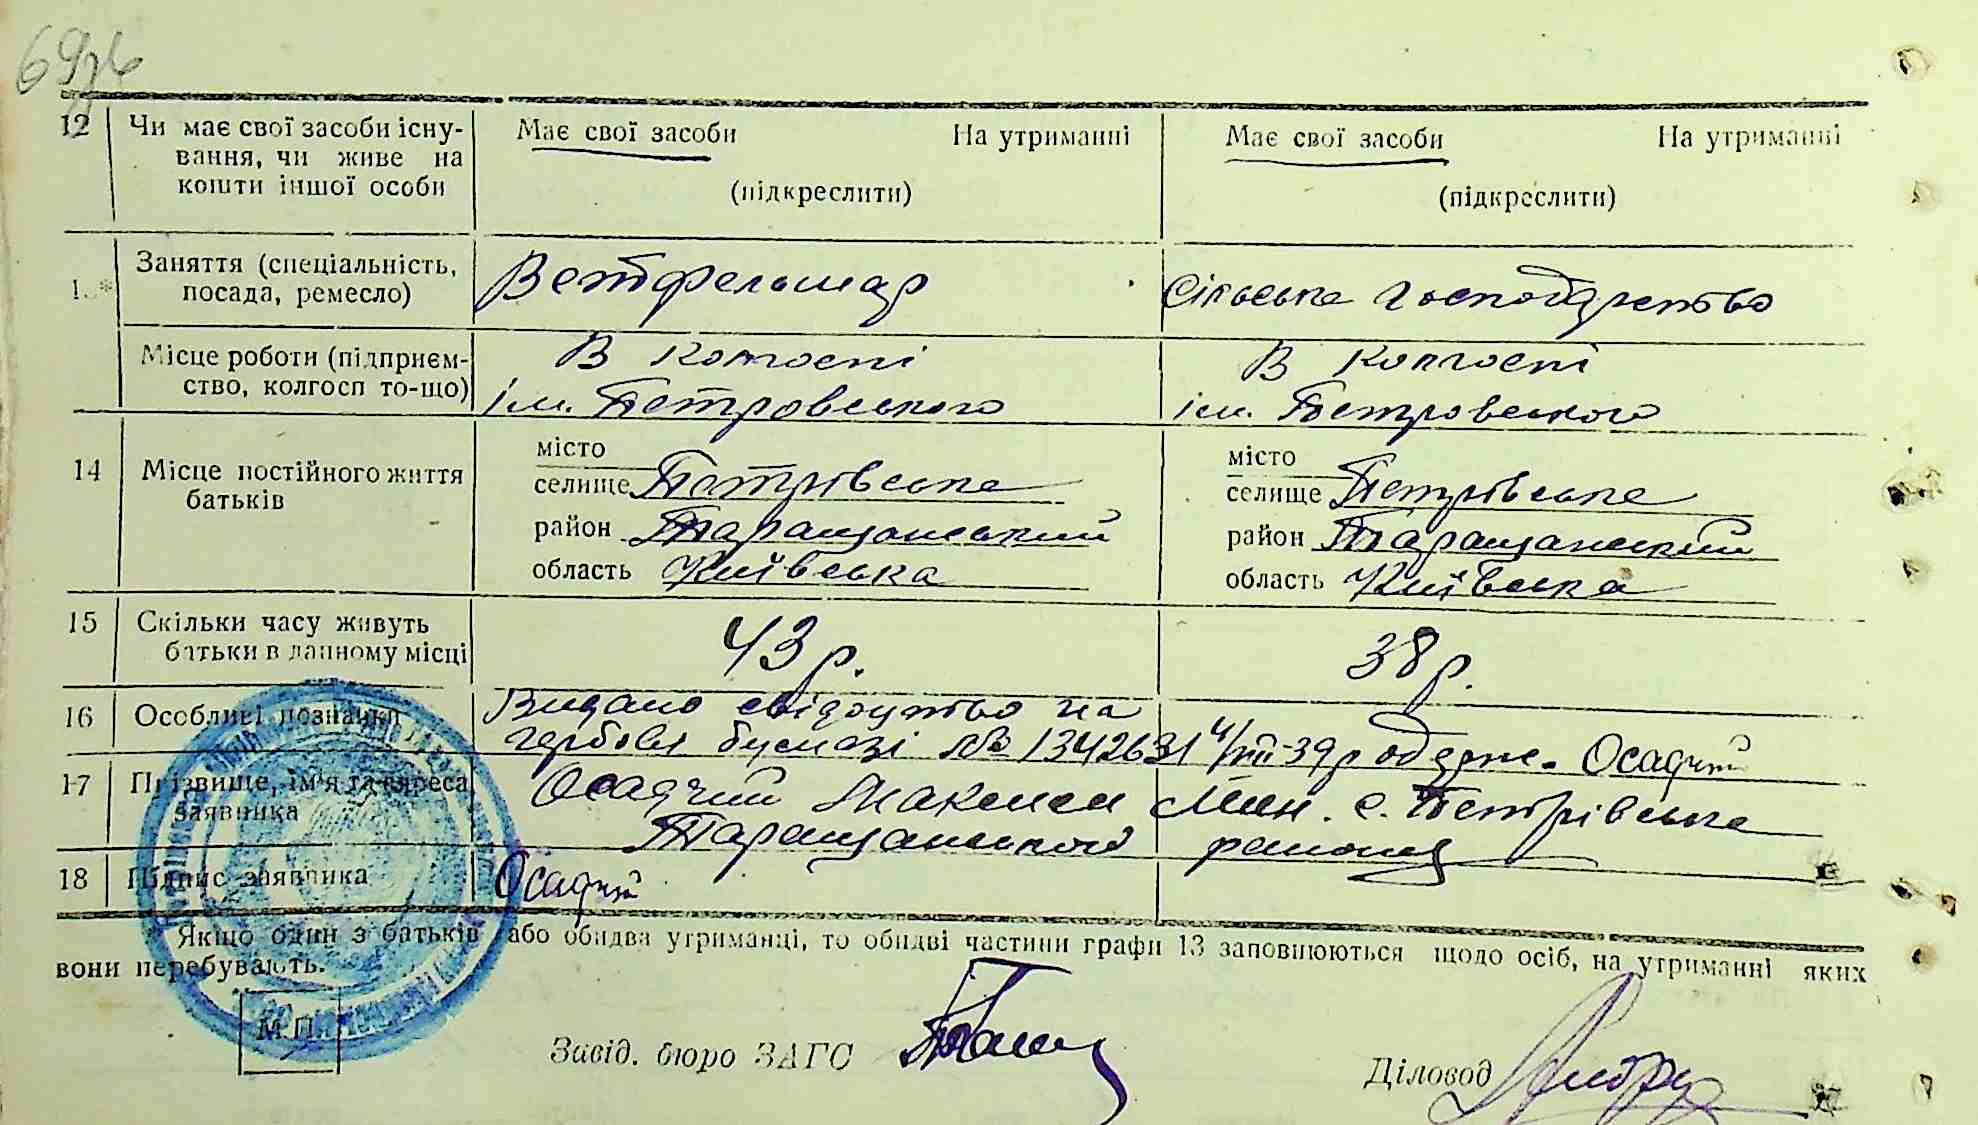 12 Чи має свої засоби існу- Має свої засоби На утриманні Має свої засоби На утриманні
вання, чи живе на
кошти іншої особи (підкреслити) (підкреслити)
Заняття (спеціальність, Ветфельшар Сільське господарство
посада, ремесло)
Місце роботи (підприєм- В колгоспі В колгоспі
ство, колгосп то-що) ім. Петровського ім. Петровського
місто місто
14 Місце постійного життя селище Петрівське селище Петрівське
батьків район Таращанський район Таращанський
область Київська область Київська
15 Скільки часу живуть 43 р. 38 р.
батьки в данному місці
16 Особливі позначки Видано свідоцтво на
гербові бумазі № 1342631 4/VIII-39р одерж. Осадчий
17 Прізвище, ім'я та адреса Осадчий Максим Мин. с. Петрівське
заявника Таращанського району
18 Підпис заявника Осадчий
Якщо один з батьків або обидва утриманці, то обидві частини графи 13 заповнюються щодо осіб, на утриманні яких
вони перебувають.
М.П.
Завід. бюро ЗАГС
Діловод